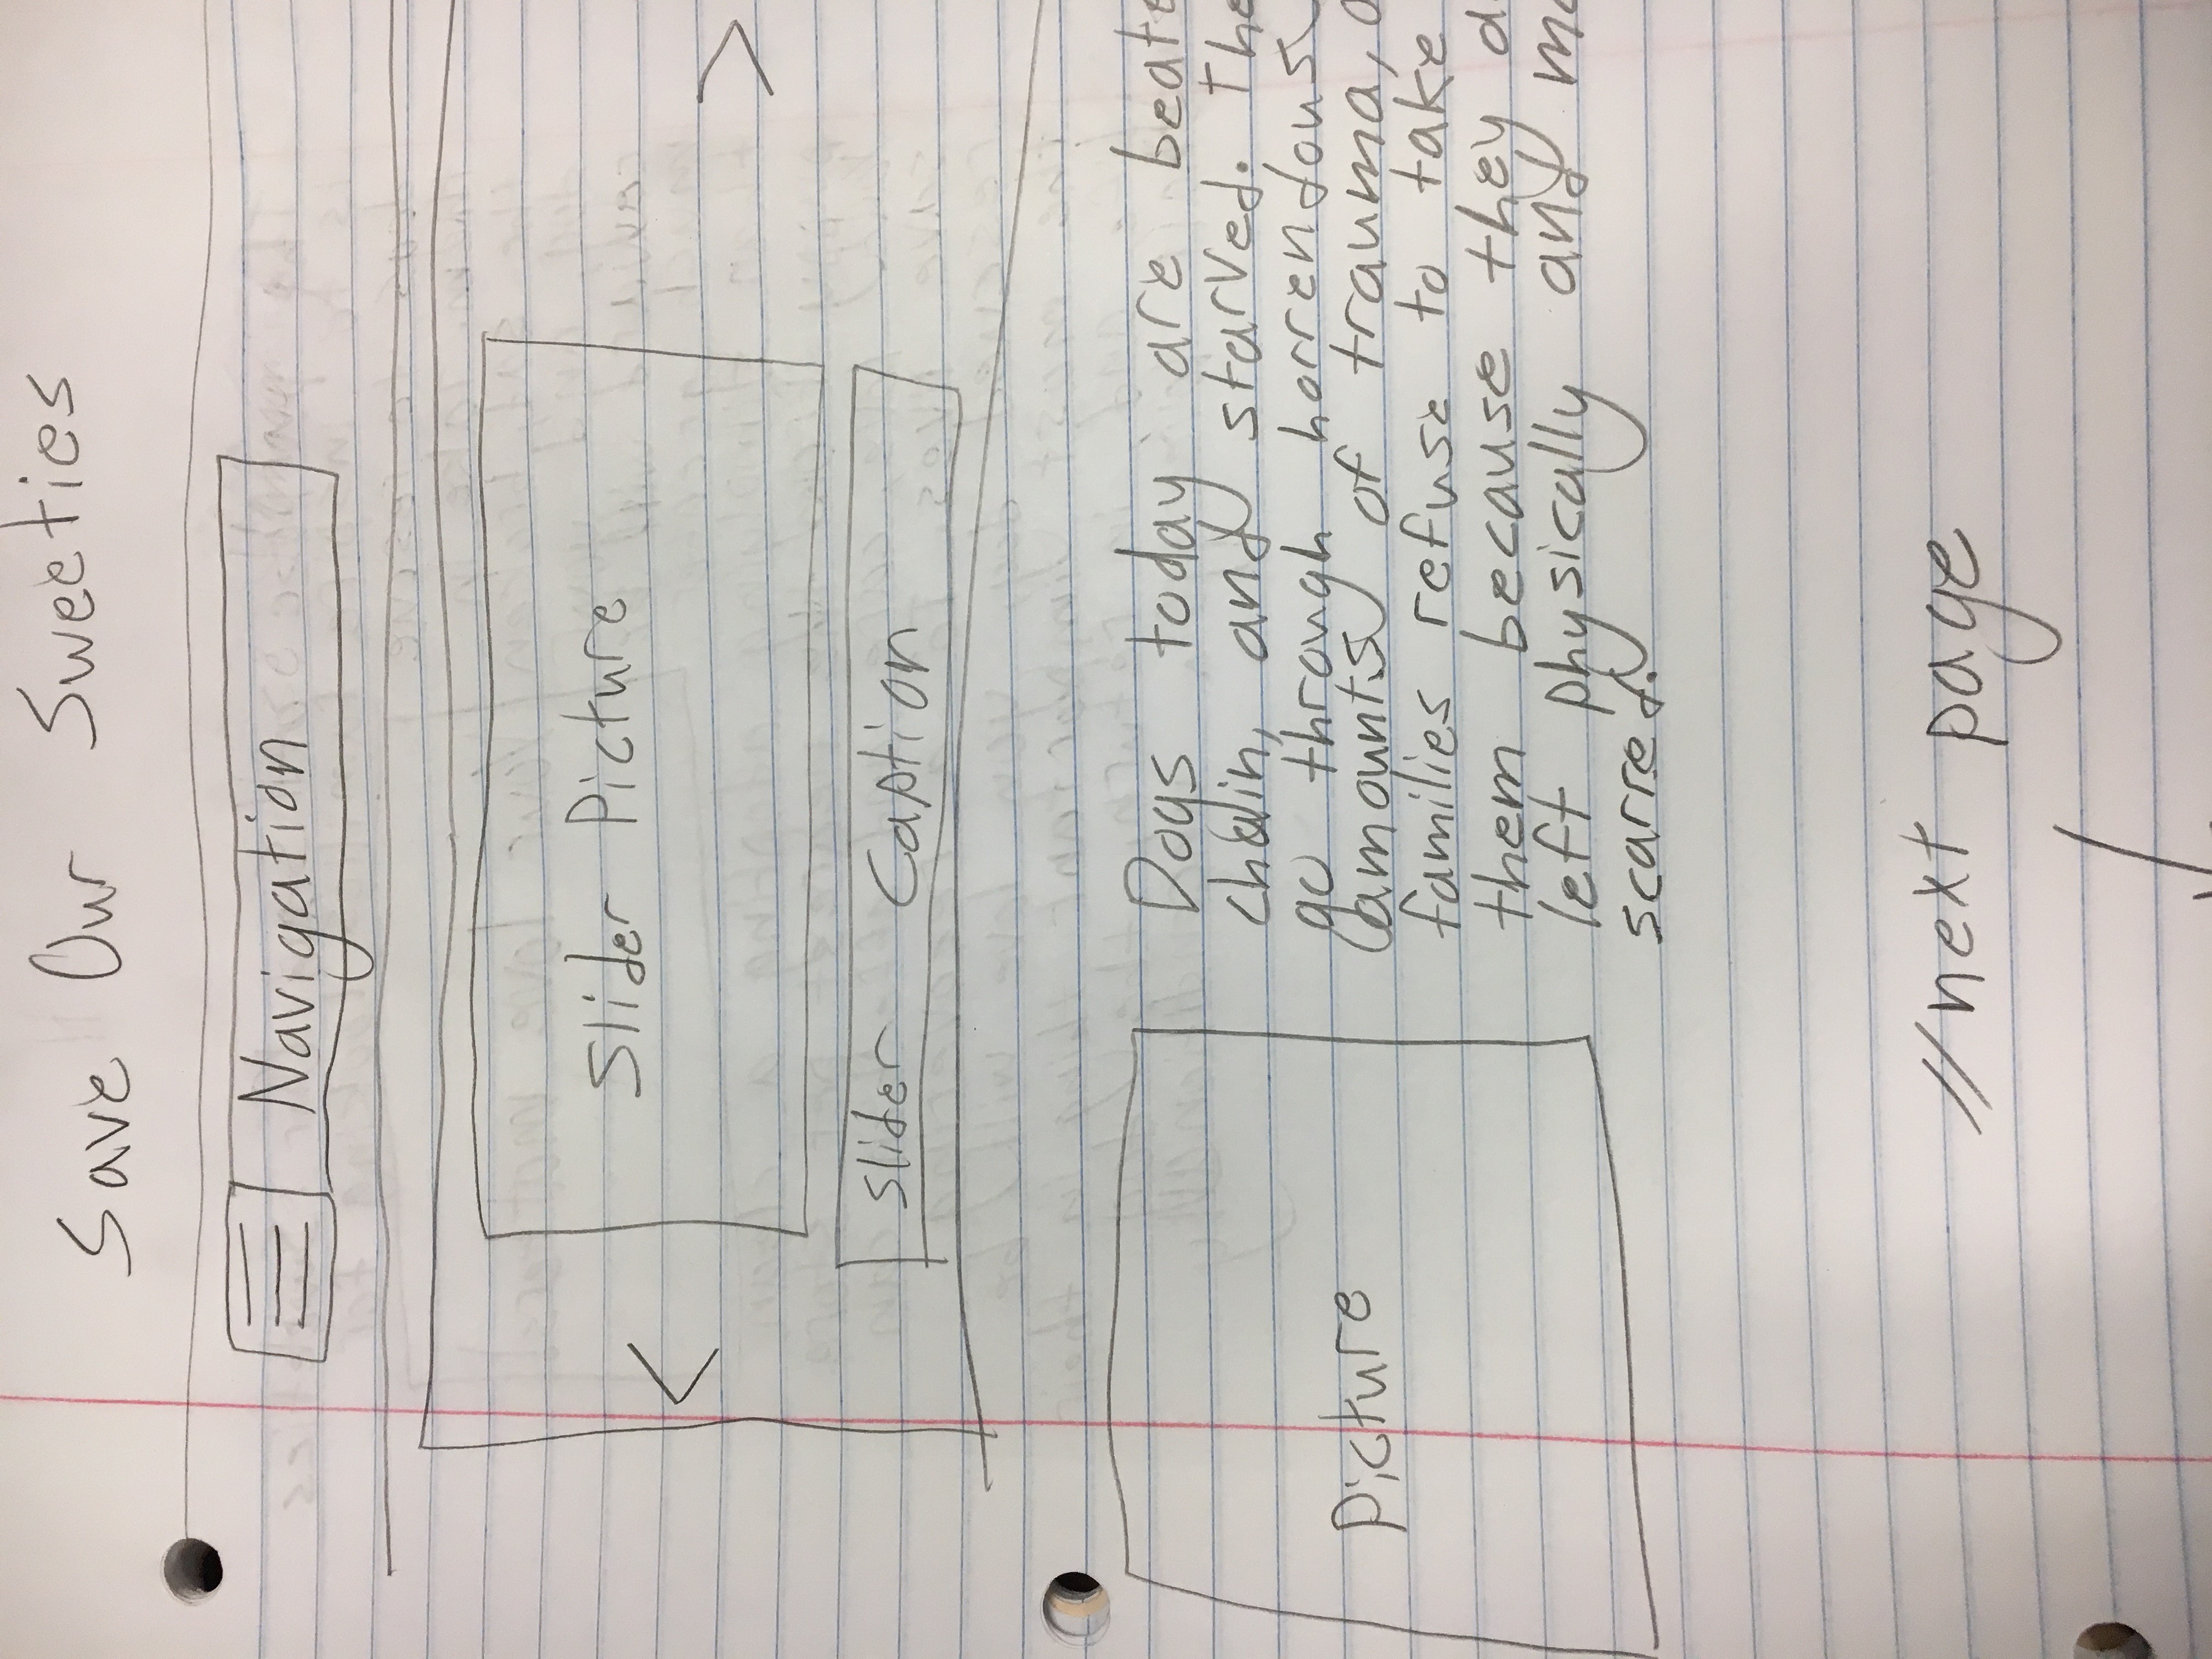 Save Our Sweeties
Navigation
<
Slider Picture
>
Slider Caption
Picture
Dogs today are beate
chain, and starved. The
go through horrendous
amounts of trauma,
families refuse to take
them because they
left physically and
scarred.
//next page